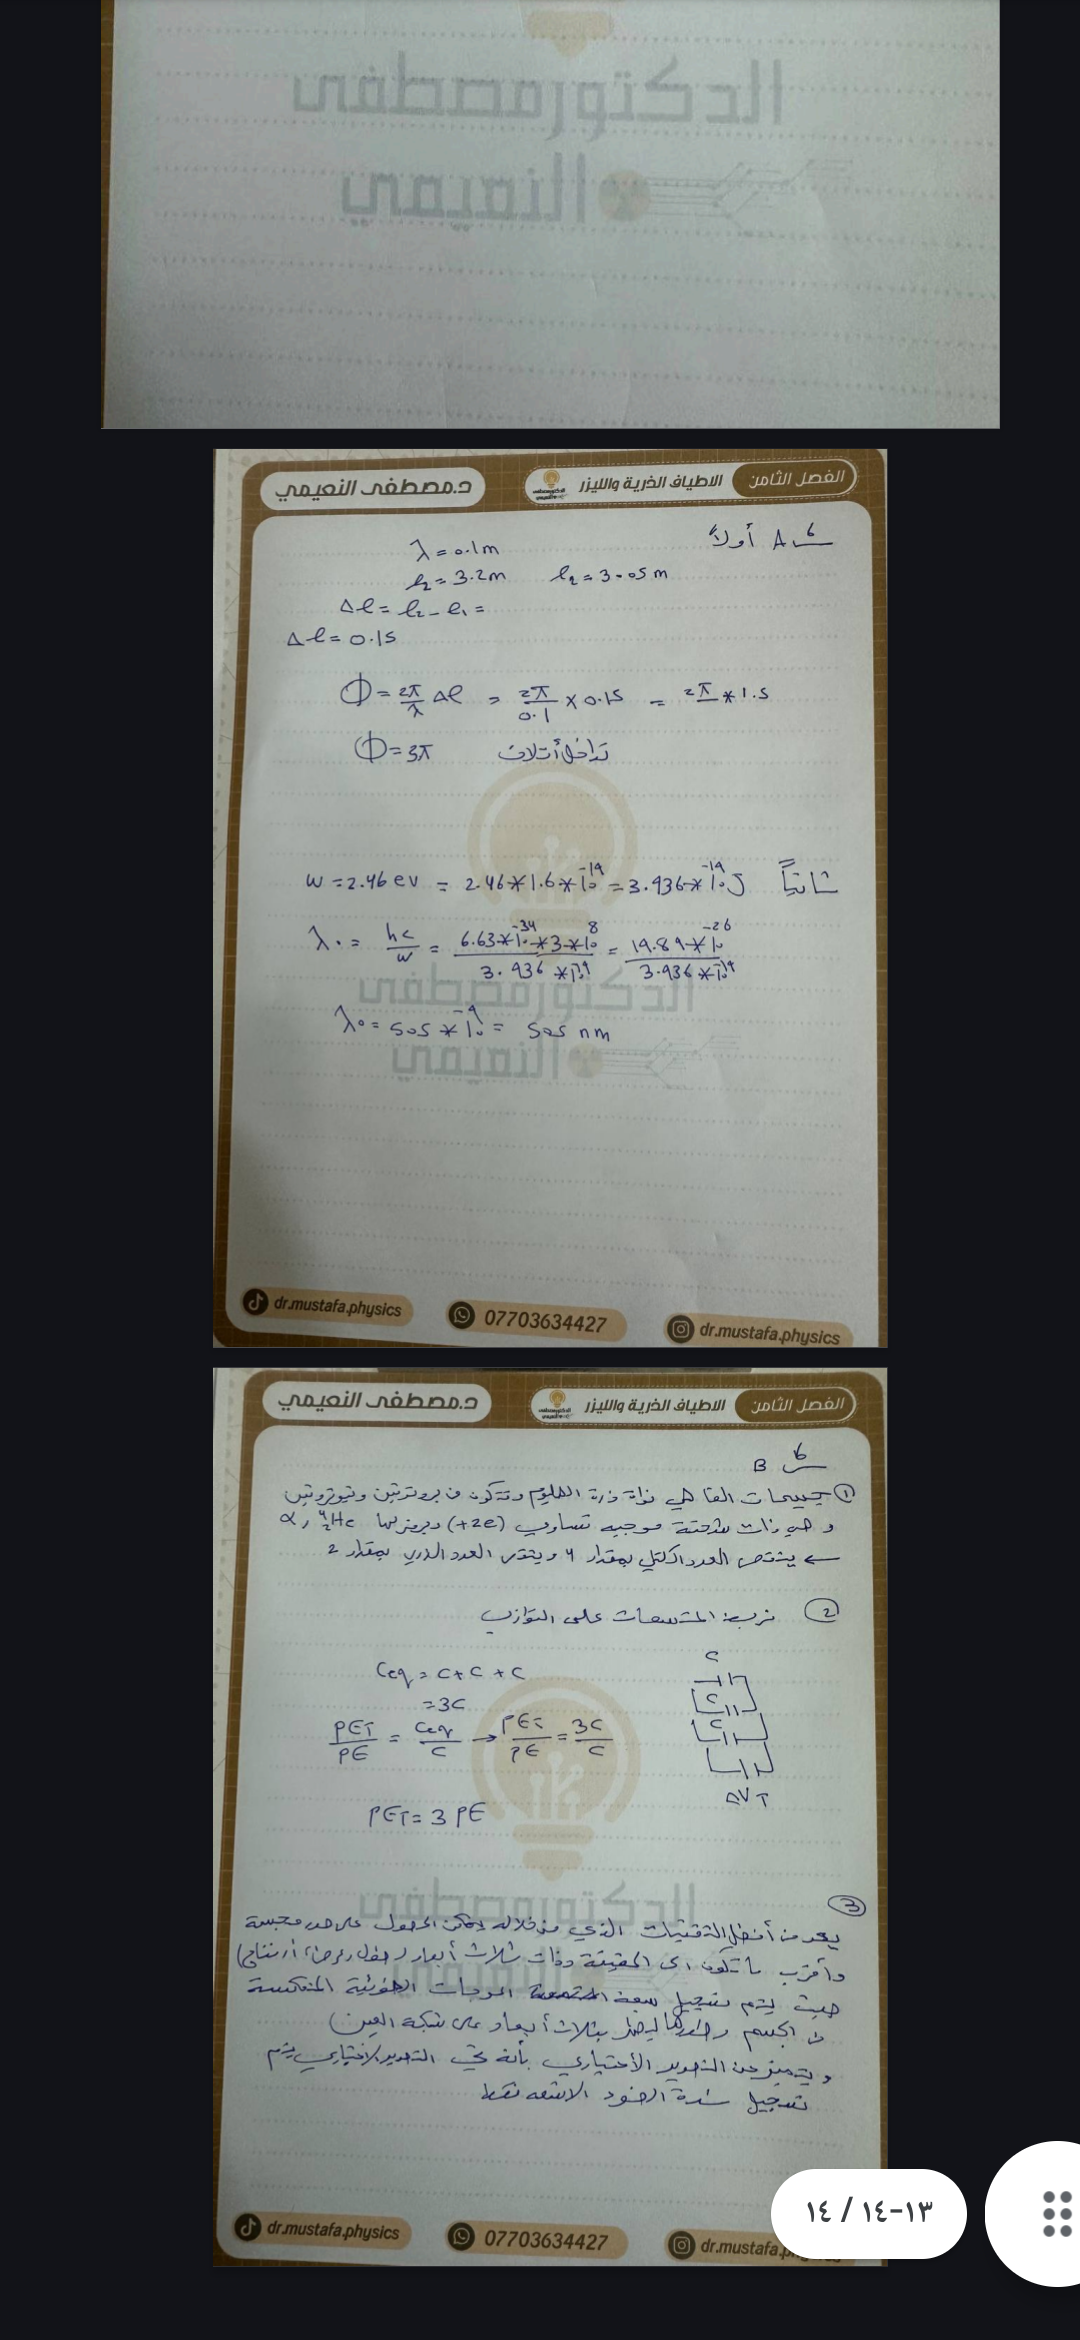 الدكتور مصطفى
النعيمي
الفصل الثامن الاطياف الذرية والليزر د.مصطفى النعيمي
س٦ A أولاً
λ = 0.1m
l₂ = 3.2m l₁ = 3.05m
Δl = l₂ - l₁ =
Δl = 0.15
Φ = 2π/λ Δl = 2π/0.1 × 0.15 = 2π * 1.5
Φ = 3π
ثانياً
w = 2.46 ev = 2.46 * 1.6 * 10⁻¹⁹ = 3.936 * 10⁻¹⁹ J
λ₀ = hc/w = 6.63*10⁻³⁴ *3*10⁸ / 3.936 *10⁻¹⁹ = 19.89*10⁻²⁶ / 3.936 *10⁻¹⁹
λ₀ = 505 * 10⁻⁹ = 505 nm
الدكتور مصطفى
النعيمي
dr.mustafa.physics 07703634427 dr.mustafa.physics
الفصل الثامن الاطياف الذرية والليزر د.مصطفى النعيمي
س٦ B
① جسيمات الفا هي نواة ذرة الهليوم وتتكون من بروتونين ونيوترونين
و هي ذات شحنة موجبه تساوي (+2e) ويرمز لها ⁴₂He , α
← ينقص العدد الكتلي بمقدار 4 وينقص العدد الذري بمقدار 2
② نربط المتسعات على التوازي
Ceq = C + C + C
= 3C
PET/PE = Ceq/C → PET/PE = 3C/C
PET = 3 PE
C
C
C
ΔVT
الدكتور مصطفى
③
يعد من أفضل التقنيات الذي من خلاله يمكن الحصول على صور مجسمة
وأقرب ما تكون الى الحقيقة وذات ثلاث أبعاد (طول, عرض, ارتفاع)
حيث يتم تسجيل سعة الموجات الضوئية المنعكسة
من الجسم بثلاث أبعاد على شبكة العين)
ويتميز عن التصوير الأعتيادي بأنه في التصوير الاعتيادي يتم
تسجيل شدة الضوء فقط
dr.mustafa.physics 07703634427 dr.mustafa.
١٣-١٤ / ١٤